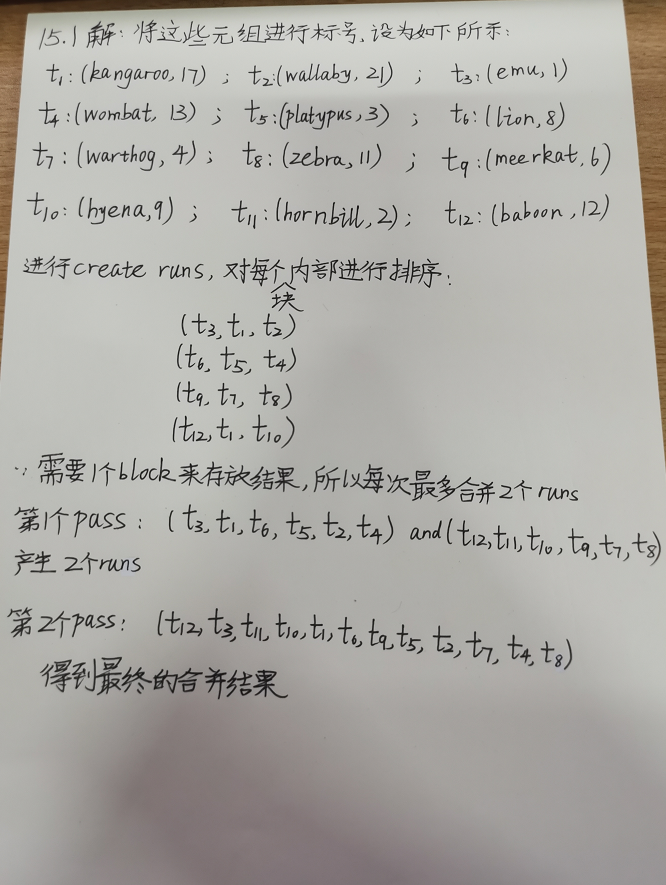 15.1 解: 将这些元组进行标号,设为如下所示:
t₁:(kangaroo,17) ; t₂:(wallaby,21) ; t₃:(emu,1)
t₄:(wombat, 13) ; t₅:(platypus,3) ; t₆:(lion,8)
t₇:(warthog, 4) ; t₈:(zebra,11) ; t₉:(meerkat,6)
t₁₀:(hyena,9) ; t₁₁:(hornbill,2) ; t₁₂:(baboon,12)
进行create runs, 对每个块内部进行排序:
(t₃, t₁, t₂)
(t₆, t₅, t₄)
(t₉, t₇, t₈)
(t₁₂, t₁, t₁₀)
∵需要1个block来存放结果,所以每次最多合并2个runs
第1个pass: (t₃,t₁,t₆,t₅,t₂,t₄) and(t₁₂,t₁₁,t₁₀,t₉,t₇,t₈)
产生2个runs
第2个pass: (t₁₂,t₃,t₁₁,t₁₀,t₁,t₆,t₉,t₅,t₂,t₇,t₄,t₈)
得到最终的合并结果